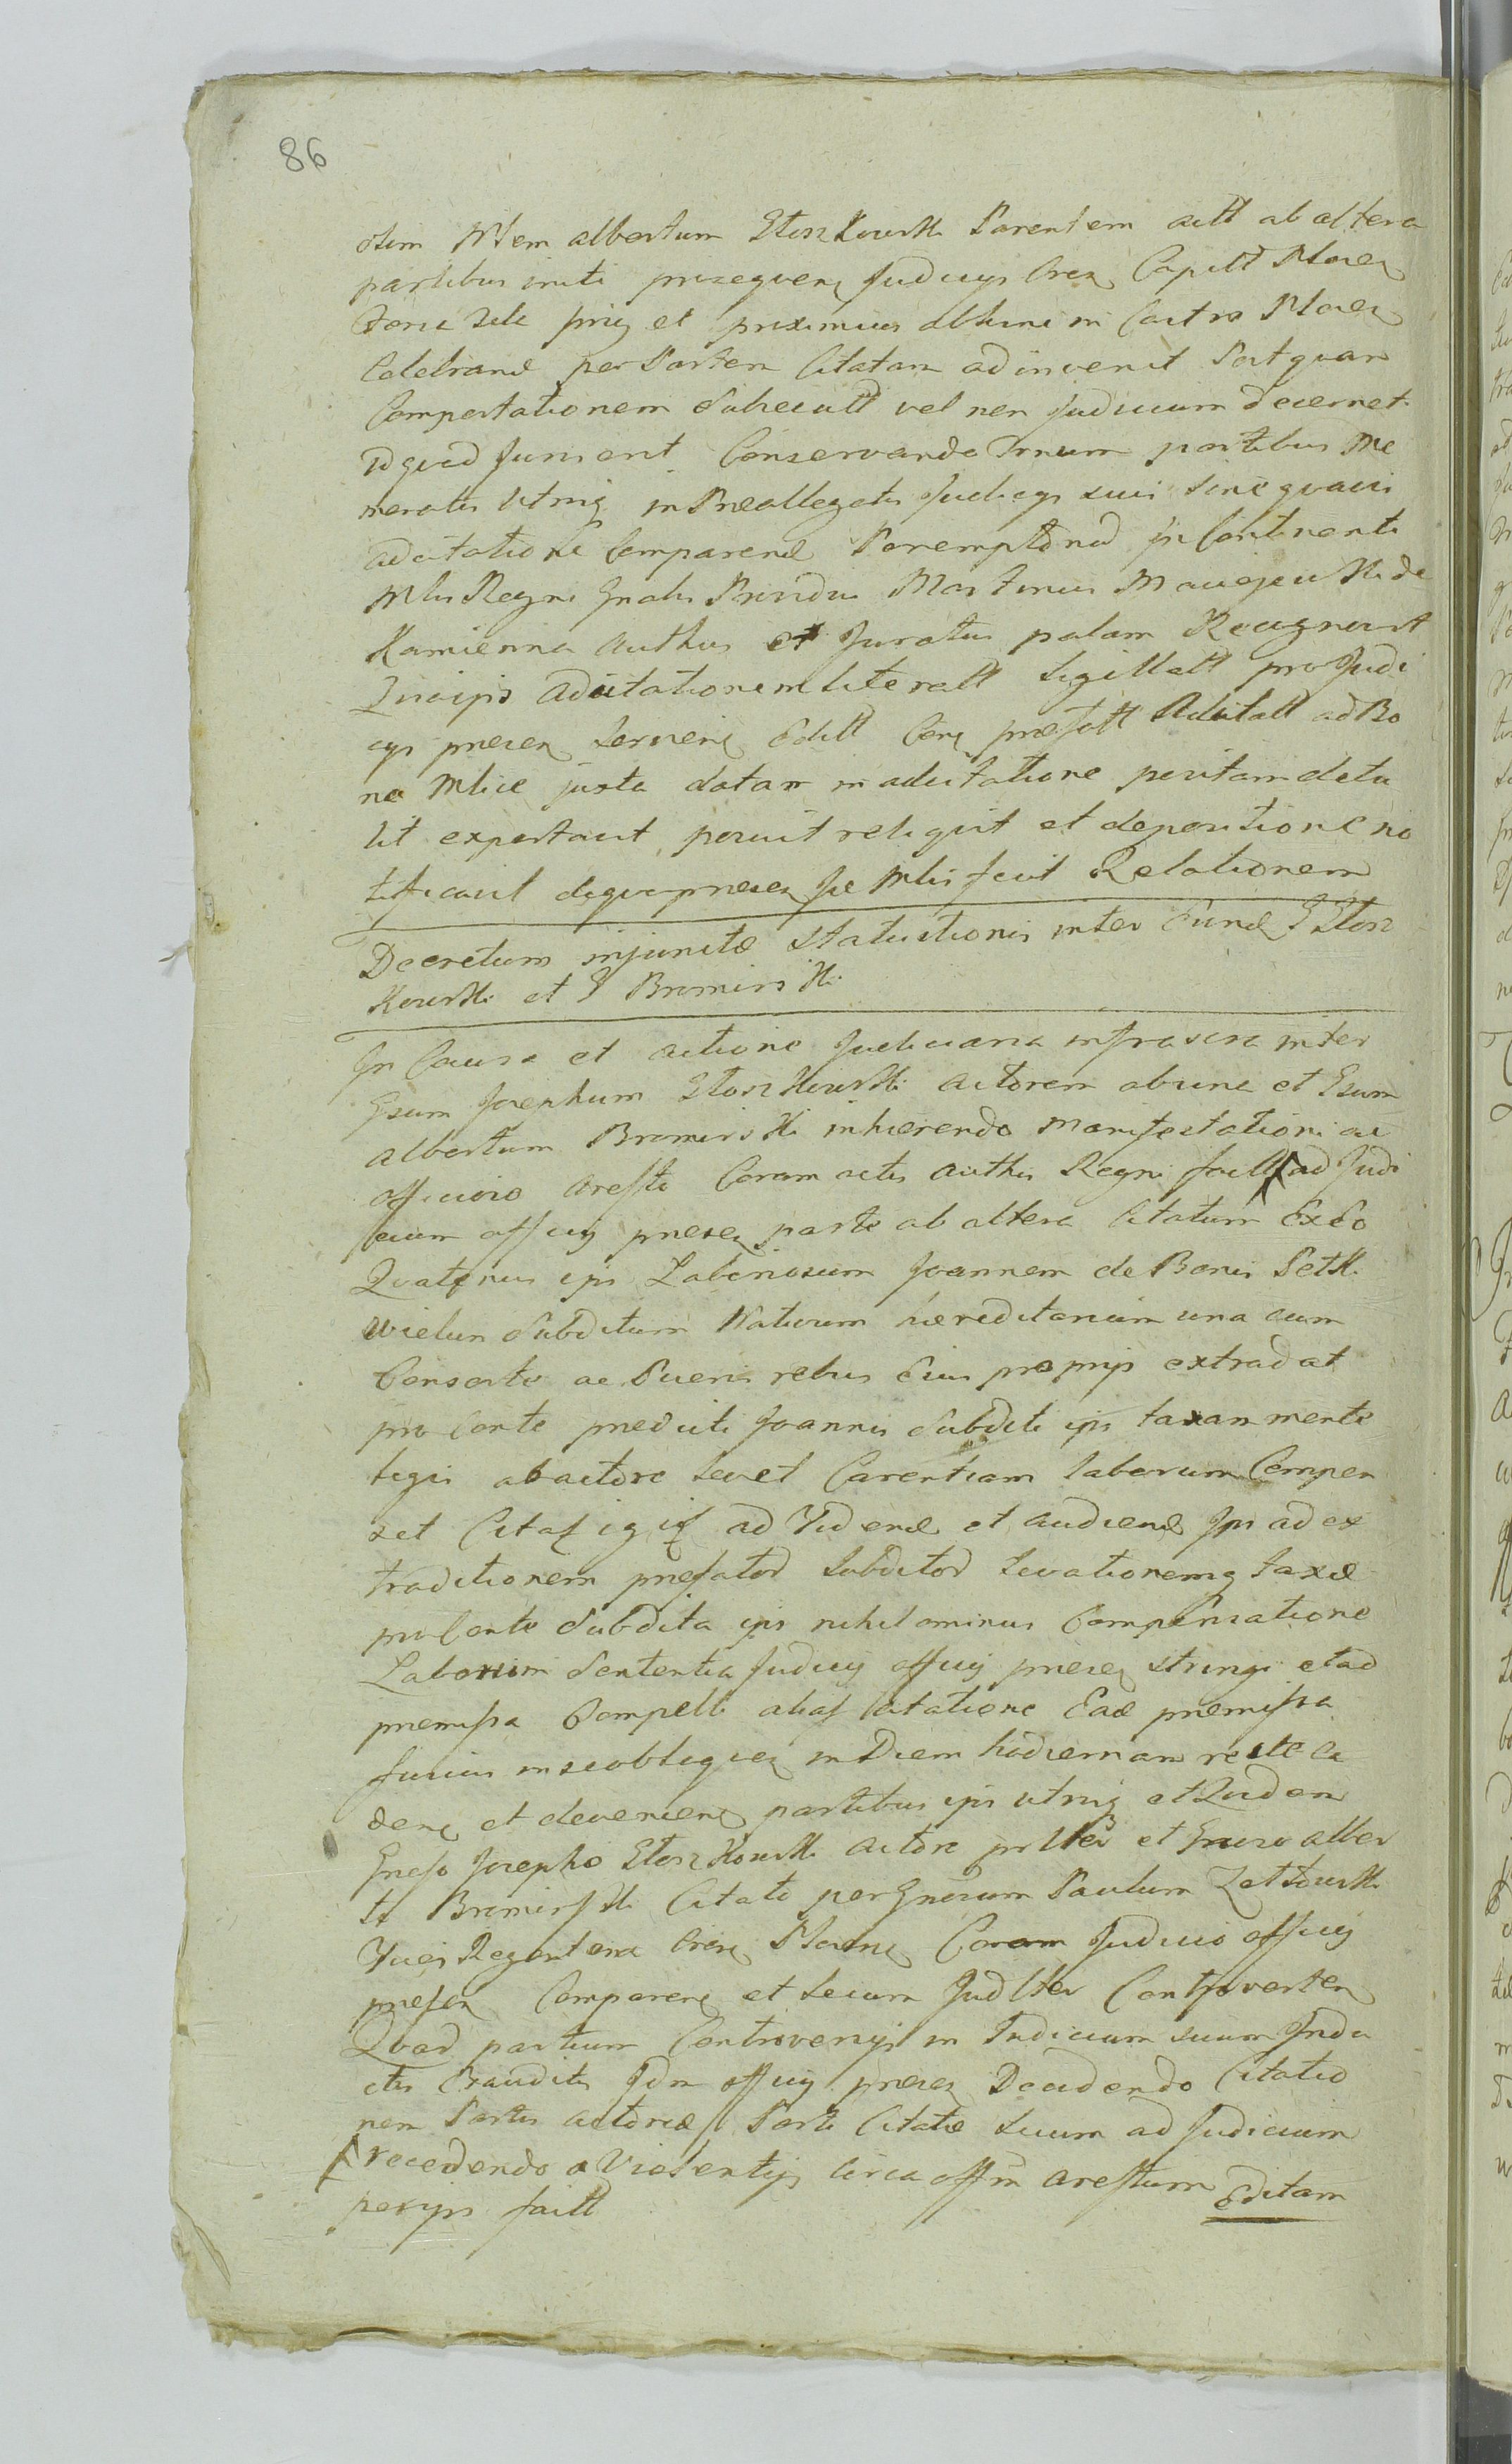 86
olim Mlem albertum Stoszkowski Parentem actt ab altera
partibus initi prosequen Judicys Cren Capitt Plocen
Feria
 et proximius abhinc in Castro Plocen
Celebrand per Partem Citatam adinvenit Post quam
Comportationem Subsecutt vel non Judicium decernet
Id quod Juris erit Conservando Trnum partibus Me
moratis utriq in Preallegatis Judicys sui sine quavis
adcitatione Comparend Peremptorid In Continenti
Mlis Regni Gnalis Providus Martinus Maciejewski de
Kamienna authus et Juratus palam Recognovit
Quia ips adcitationem literatt Sigillatt pro Judi
cys presen servien Editt Cere presstt Adcitatt ad Bo
na juxta datam in adcitatione positam detu
lit exportavit posuit reliquit et depositione no
tificavit deqve presen se Mlis fecit Relationem
Decretum injunctæ Statuitionis inter Eund G Stosz
kowski et G Bromirski
In Causa et actione Judiciaria infrascra inter
Gsum Josephum Stoszkowski actorem ab una et Gsum
albertum Bromirski inhærendo Manifestationi ac
officioso aresto Coram actis authis Regni factt ad Judi
cium officij presen parte ab altera Citatum Ex Eo
Quatenus ips Laboriosum Joannem de Bonis
wielun Subditum Nativum hæreditarium una cum
Consorte ac Pueris rebus Eius proprijs extradat
pro Conte predicti Joannis Subditi ips taxam mente
legis ab actore levet Carentiam laborum Compen
set ad Vidend et audiend Ips ad ex
traditionem prefator Subditor levationemq taxæ
pro Conte Subdita ips nihilominus Compensatione
Laborum Sententia Judicij officij presen stringi et ad
premissa Compelli alias Citatione Ead premissa
fusius in se obloquen in Diem hodiernam recte ca
den et devenien partibus ips utriq et Quidem
Gneso Josepho Stoszkowski actore prlter et Gneroso alber
to Bromirski Citato per Gnosum Paulum
Vices Regentem Cren Plocen Coram Judicio officij
presen Comparen et secum Judlter Controverten
Quod partium Controversijs in Judicium suum Indu
ctis Exauditis Idm officij presen Decidendo Citatio
nem Partis actoreæ Parti Citatæ suum ad Judicium
recedendo a Violentijs circa offm arestum Editam
per ips factt